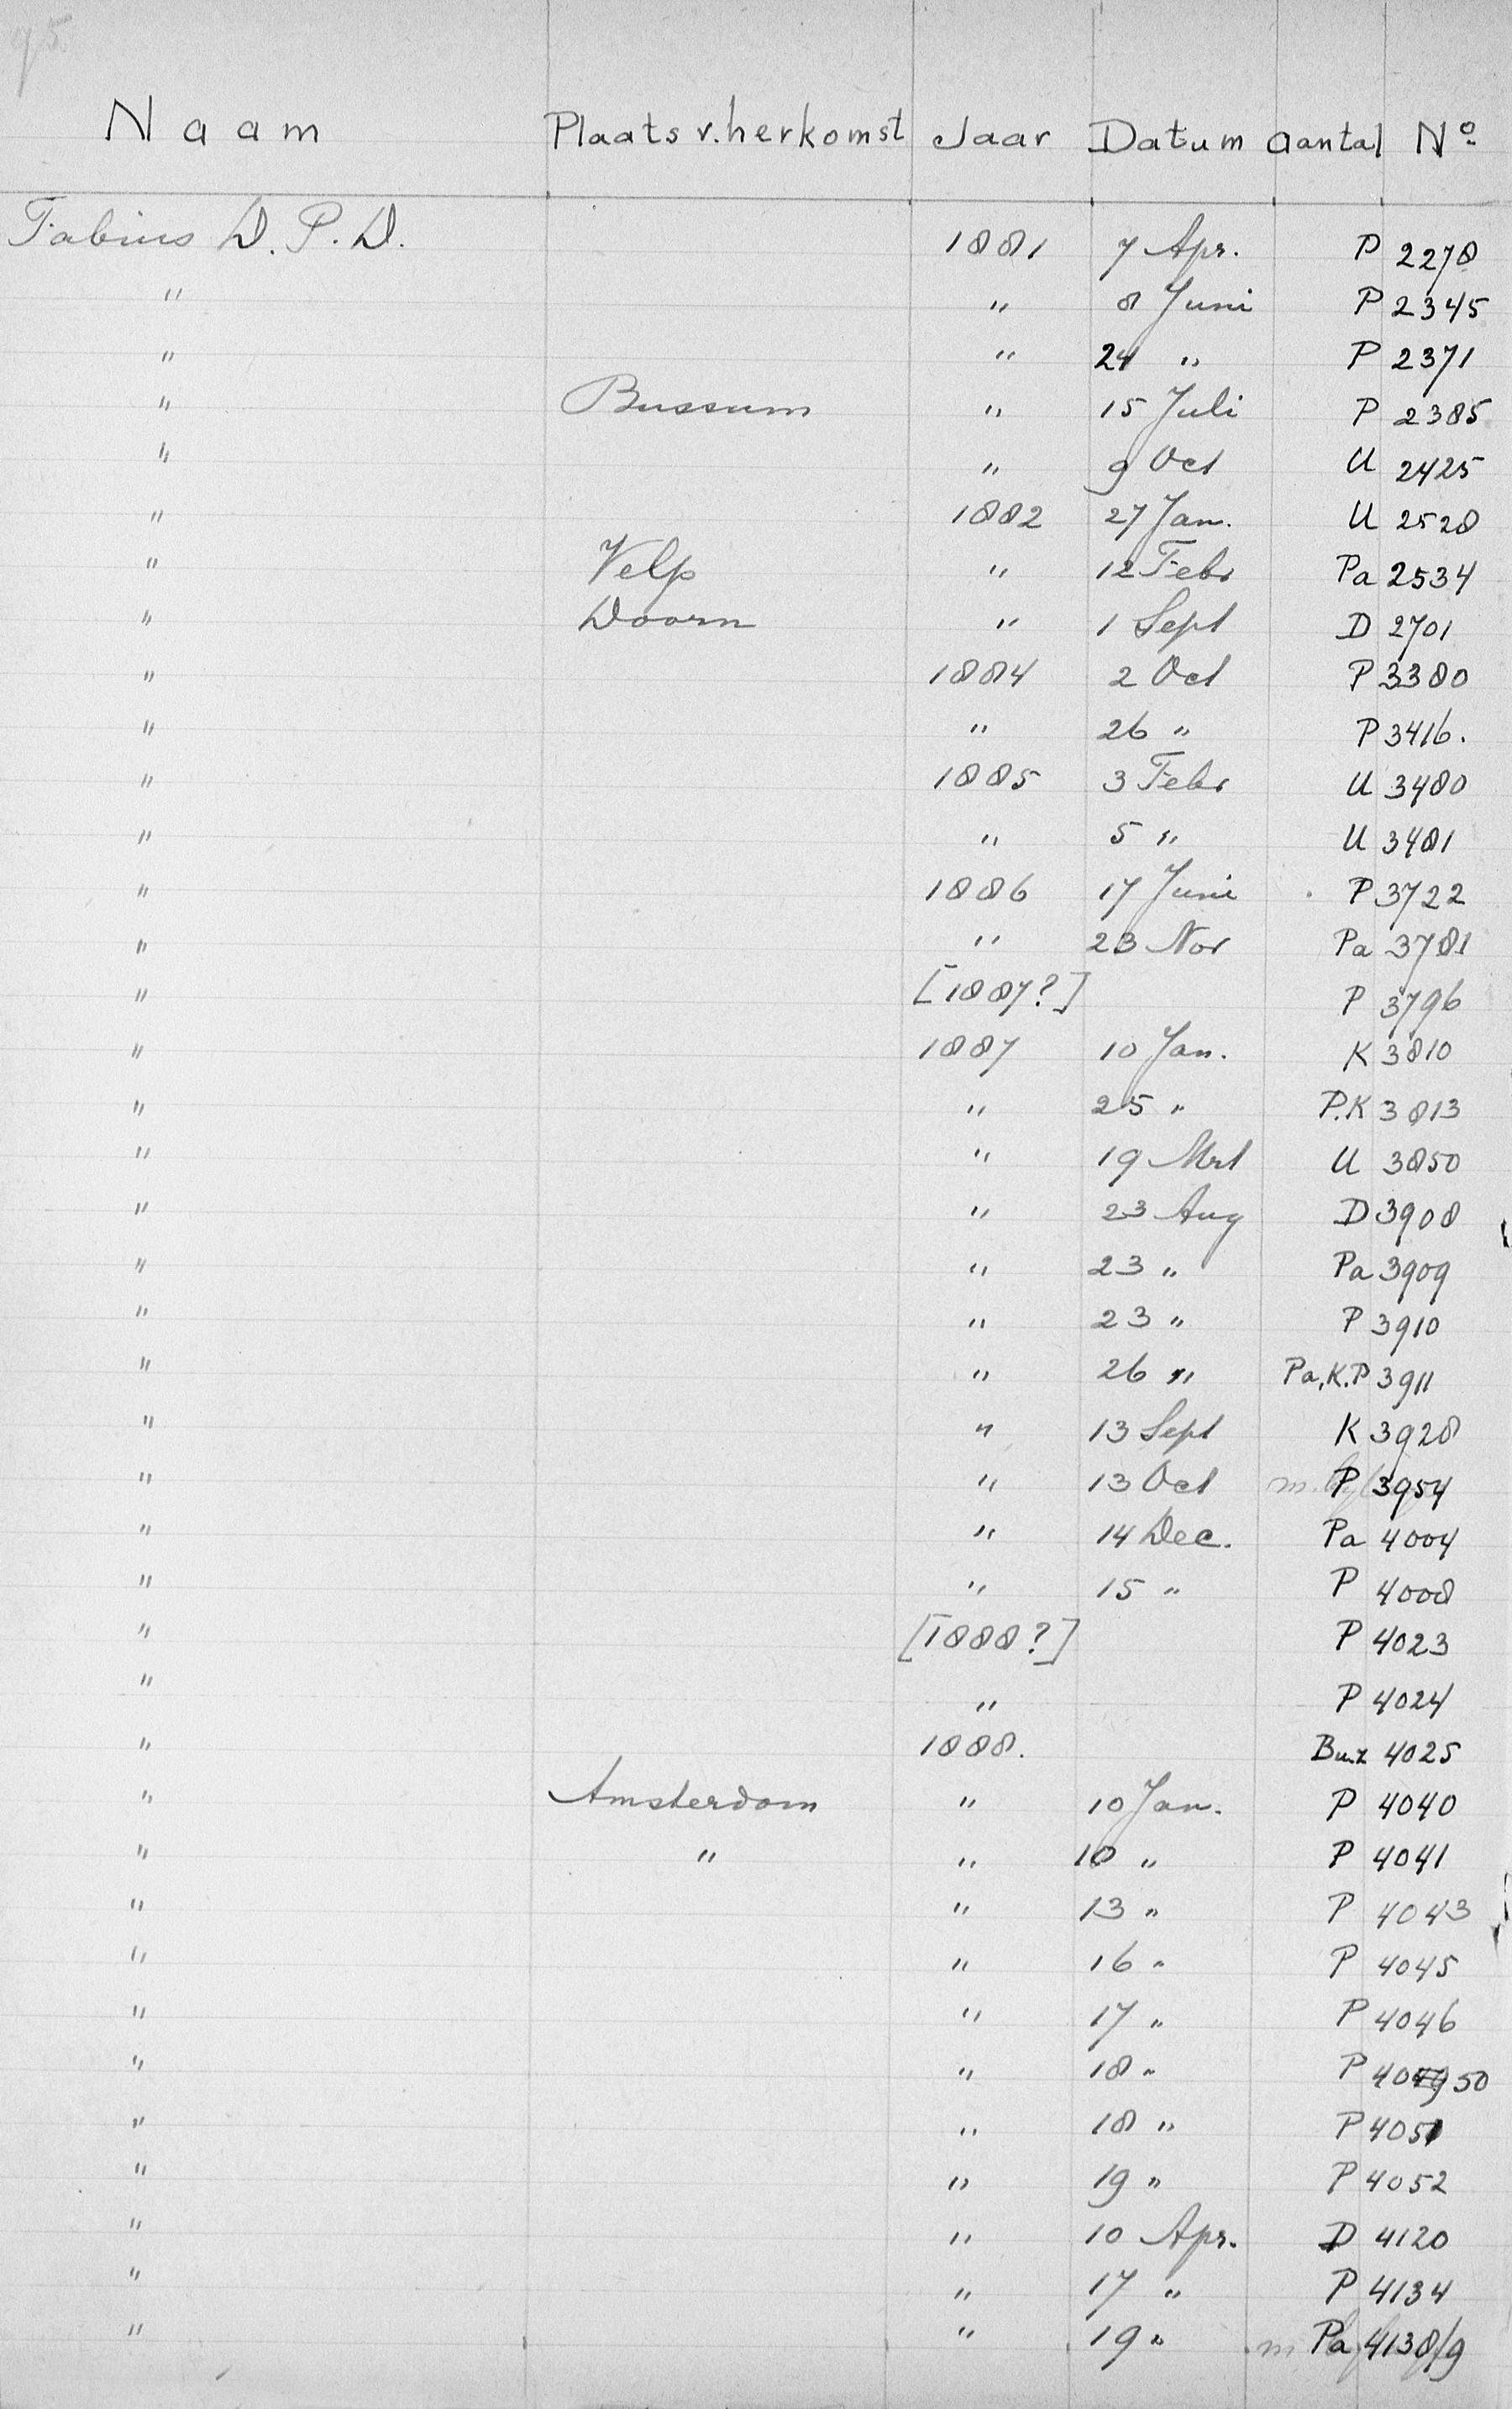 95
Naam Plaats v. herkomst Jaar Datum aantal Nº
Fabius D. P. D. 1881 7 Apr. P 2278
" " 8 Juni P 2345
" " 24 " P 2371
" Bussum " 15 Juli P 2385
" " 9 Oct U 2425
" 1882 27 Jan. U 2528
" Velp " 12 Febr Pa 2534
" Doorn " 1 Sept D 2701
" 1884 2 Oct P 3380
" " 26 " P 3416.
" 1885 3 Febr U 3480
" " 5 " U 3481
" 1886 17 Juni P 3722
" " 23 Nov Pa 3781
" [1887?] P 3796
" 1887 10 Jan. K 3810
" " 25 " P.K 3813
" " 19 Mrt U 3850
" " 23 Aug D 3908
" " 23 " Pa 3909
" " 23 " P 3910
" " 26 " Pa,K.P 3911
" " 13 Sept K 3928
" " 13 Oct m. P 3954
" " 14 Dec. Pa 4004
" " 15 " P 4008
" [1888?] P 4023
" " P 4024
" 1888. 4025
" Amsterdam " 10 Jan. P 4040
" " " 10 " P 4041
" " 13 " P 4043
" " 16 " P 4045
" " 17 " P 4046
" " 18 " P 4049 50
" " 18 " P 4051
" " 19 " P 4052
" " 10 Apr. D 4120
" " 17 " P 4134
" " 19 " m Pa 4138/9